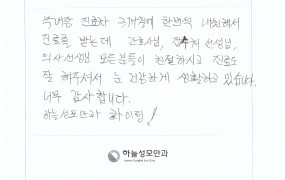 녹내장 진료차 3개월에 한번씩 내원해서
진료를 받는데 간호사님, 접수처 선생님,
의사선생님 모든분들이 친절하시고 진료도
잘 해주셔서 눈 건강하게 생활하고 있습니다.
너무 감사합니다.
하늘성모안과 화이팅!
하늘성모안과